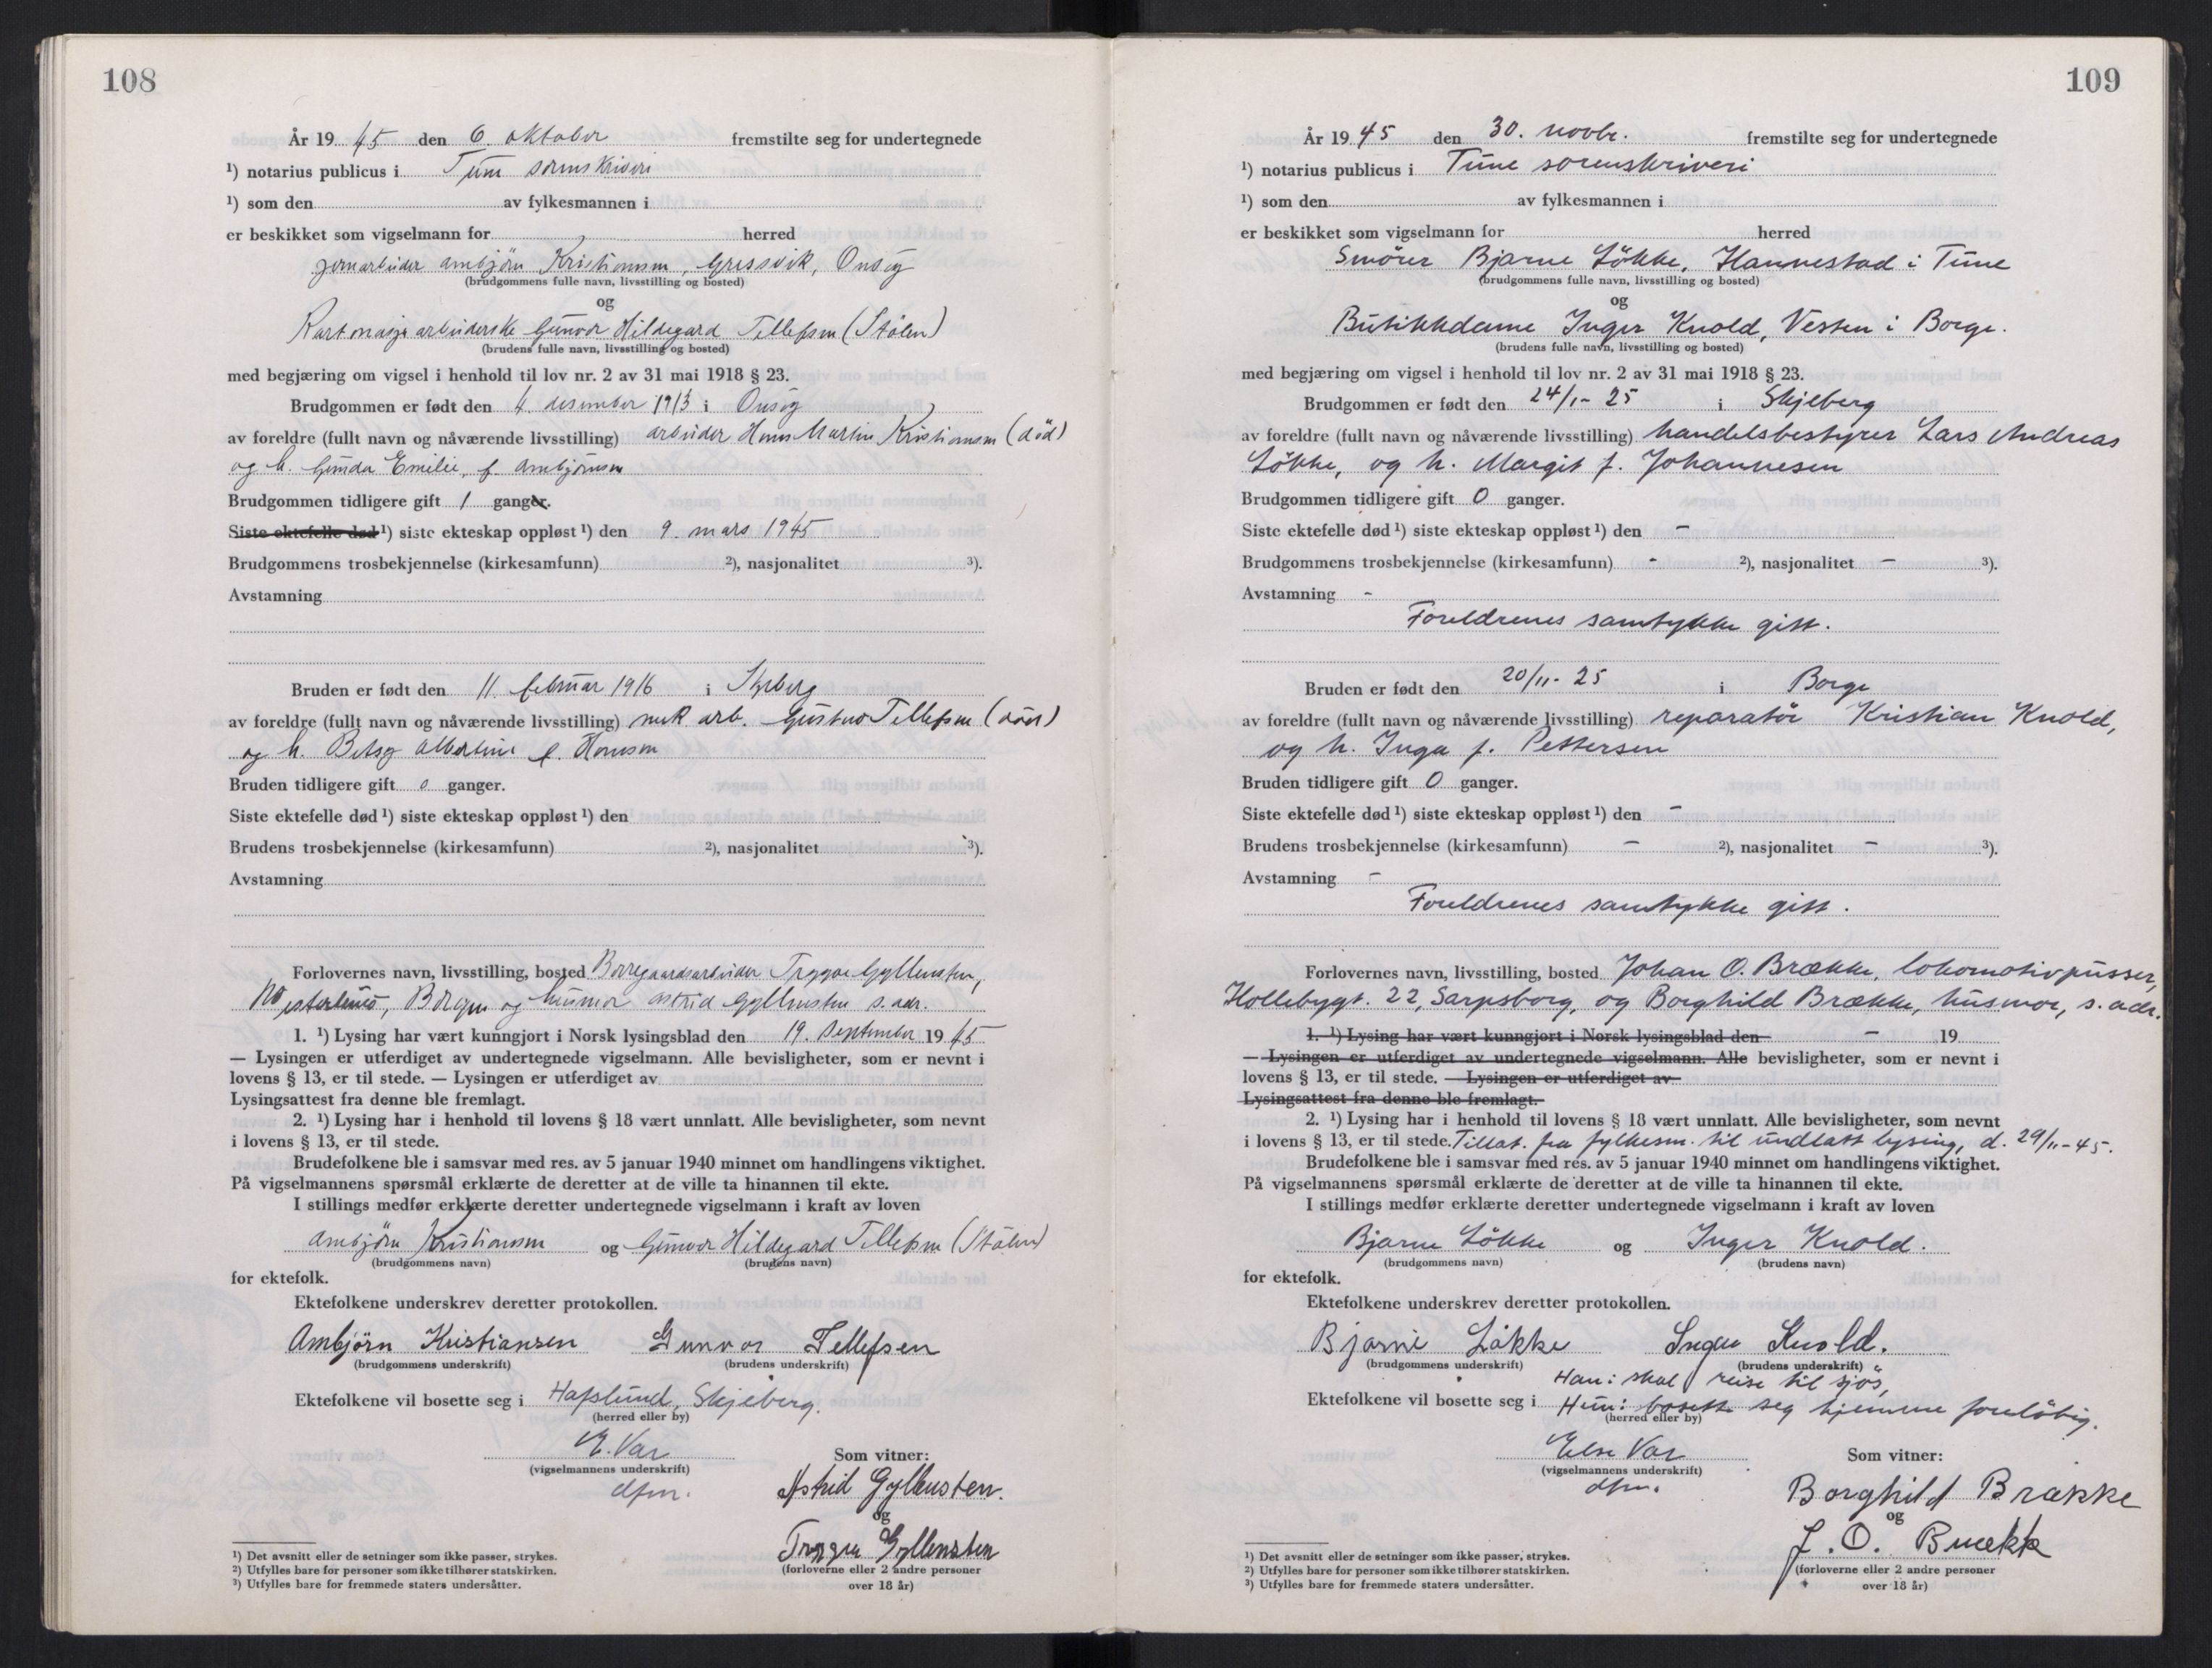 108
År 19 45 den 6. oktober fremstilte seg for undertegnede
¹) notarius publicus i Tune sorenskriveri
¹) som den av fylkesmannen i
er beskikket som vigselmann for herred
jernarbeider Ambjörn Kristiansen, Gressvik, Onsöy
(brudgommens fulle navn, livsstilling og bosted)
og
Kartonasjearbeiderske Gunvor Hildegard Tellefsen (Stölen)
(brudens fulle navn, livsstilling og bosted)
med begjæring om vigsel i henhold til lov nr. 2 av 31 mai 1918 § 23.
Brudgommen er født den 4. desember 1913 i Onsöy
av foreldre (fullt navn og nåværende livsstilling) arbeider Hans Martin Kristiansen (död)
og h. Gunda Emilie, f. Ambjörnsen
Brudgommen tidligere gift 1 ganger.
Siste ektefelle død ¹) siste ekteskap oppløst ¹) den 9. mars 1945
Brudgommens trosbekjennelse (kirkesamfunn) ²), nasjonalitet ³).
Avstamning
Bruden er født den 11. februar 1916 i Skjeberg
av foreldre (fullt navn og nåværende livsstilling) mek arb. Gustav Tellefsen (död)
og h. Betsy Albertine f. Hansen
Bruden tidligere gift 0 ganger.
Siste ektefelle død ¹) siste ekteskap oppløst ¹) den
Brudens trosbekjennelse (kirkesamfunn) ²), nasjonalitet ³).
Avstamning
Forlovernes navn, livsstilling, bosted Borregaardsarbeider Trygve Gyllensten,
Borgen og husmor Astrid Gyllensten s. adr.
1. ¹) Lysing har vært kunngjort i Norsk lysingsblad den 19. september 19 45
— Lysingen er utferdiget av undertegnede vigselmann. Alle bevisligheter, som er nevnt i
lovens § 13, er til stede. — Lysingen er utferdiget av
Lysingsattest fra denne ble fremlagt.
2. ¹) Lysing har i henhold til lovens § 18 vært unnlatt. Alle bevisligheter, som nevnt
i lovens § 13, er til stede.
Brudefolkene ble i samsvar med res. av 5 januar 1940 minnet om handlingens viktighet.
På vigselmannens spørsmål erklærte de deretter at de ville ta hinannen til ekte.
I stillings medfør erklærte deretter undertegnede vigselmann i kraft av loven
Ambjörn Kristiansen og Gunvor Hildegard Tellefsen (Stölen)
(brudgommens navn) (brudens navn)
for ektefolk.
Ektefolkene underskrev deretter protokollen.
Ambjörn Kristiansen Gunvor Tellefsen
(brudgommens underskrift) (brudens underskrift)
Ektefolkene vil bosette seg i Hafslund, Skjeberg.
(herred eller by)
E. Var
(vigselmannens underskrift)
dfm.
Som vitner:
Astrid Gyllensten.
og
Trygve Gyllensten
(forloverne eller 2 andre personer
over 18 år)
¹) Det avsnitt eller de setninger som ikke passer, strykes.
²) Utfylles bare for personer som ikke tilhører statskirken.
³) Utfylles bare for fremmede staters undersåtter.
109
År 19 45 den 30. novbr. fremstilte seg for undertegnede
¹) notarius publicus i Tune sorenskriveri
¹) som den av fylkesmannen i
er beskikket som vigselmann for herred
Smörer Bjarne Lökke, Hannestad i Tune
(brudgommens fulle navn, livsstilling og bosted)
og
Butikkdame Inger Knold, Vesten i Borge.
(brudens fulle navn, livsstilling og bosted)
med begjæring om vigsel i henhold til lov nr. 2 av 31 mai 1918 § 23.
Brudgommen er født den 24/1- 25 i Skjeberg
av foreldre (fullt navn og nåværende livsstilling) handelsbestyrer Lars Andreas
Lökke, og h. Margit f. Johannesen
Brudgommen tidligere gift 0 ganger.
Siste ektefelle død ¹) siste ekteskap oppløst ¹) den -
Brudgommens trosbekjennelse (kirkesamfunn) - ²), nasjonalitet - ³).
Avstamning -
Foreldrenes samtykke gitt.
Bruden er født den 20/11- 25 i Borge
av foreldre (fullt navn og nåværende livsstilling) reparatör Kristian Knold,
og h. Inga f. Pettersen
Bruden tidligere gift 0 ganger.
Siste ektefelle død ¹) siste ekteskap oppløst ¹) den -
Brudens trosbekjennelse (kirkesamfunn) - ²), nasjonalitet - ³).
Avstamning -
Foreldrenes samtykke gitt.
Forlovernes navn, livsstilling, bosted Johan O. Brække, lokomotivpusser,
Hollebygt. 22, Sarpsborg, og Borghild Brække, husmor, s. adr.
1. ¹) Lysing har vært kunngjort i Norsk lysingsblad den - 19
— Lysingen er utferdiget av undertegnede vigselmann. Alle bevisligheter, som er nevnt i
lovens § 13, er til stede. — Lysingen er utferdiget av
Lysingsattest fra denne ble fremlagt.
2. ¹) Lysing har i henhold til lovens § 18 vært unnlatt. Alle bevisligheter, som nevnt
i lovens § 13, er til stede. Tillat. fra fylkesm. til undlatt lysing, d. 29/11-45.
Brudefolkene ble i samsvar med res. av 5 januar 1940 minnet om handlingens viktighet.
På vigselmannens spørsmål erklærte de deretter at de ville ta hinannen til ekte.
I stillings medfør erklærte deretter undertegnede vigselmann i kraft av loven
Bjarne Lökke og Inger Knold.
(brudgommens navn) (brudens navn)
for ektefolk.
Ektefolkene underskrev deretter protokollen.
Bjarne Løkke Inger Knold.
(brudgommens underskrift) (brudens underskrift)
Han: skal reise til sjös,
Ektefolkene vil bosette seg i Hun: bosette seg hjemme forelöbig.
(herred eller by)
Else Var
(vigselmannens underskrift)
dfm.
Som vitner:
Borghild Brække
og
J. O. Brække
(forloverne eller 2 andre personer
over 18 år)
¹) Det avsnitt eller de setninger som ikke passer, strykes.
²) Utfylles bare for personer som ikke tilhører statskirken.
³) Utfylles bare for fremmede staters undersåtter.